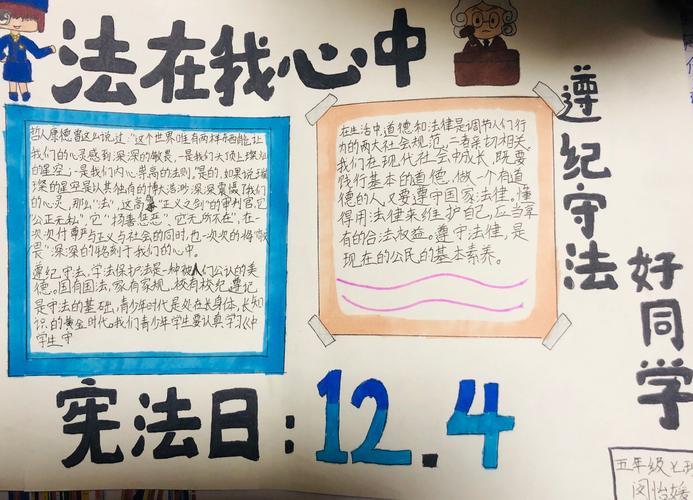 法在我心中
哲人康德曾这么说过:"这个世界唯有两样东西能让
我们的心灵感到深深的敬畏,一是我们头顶上璀灿
的星空,一是我们内心崇高的法则."是的,如果说璀
璨的星空是以其独有的博大浩渺深深震慑了我们
的心灵,那么"法",这高举"正义之剑"的审判官,它
"公正无私",它"扬善惩恶",它"无所不在",在一
次次付尊严与正义与社会的同时,也一次次的将"敬
畏"深深的铭刻于我们的心中。
遵纪守法,学法保护法是一种被人们公认的美
德。国有国法,家有家规,校有校纪遵记
是守法的基础,青少年时代是处在长身体,长知
识,的黄金时代,我们青少年学生要认真学习《中
学生守
在生活中,道德和法律是调节人们行
为的两大社会规范,二者亲切相关,
我们在现代社会中成长,既要
践行基本的道德,做一个有道
德的人,又要遵守国家法律。懂
得用法律来维护自己,应当享
有的合法权益。遵守法律,是
现在的公民的基本素养。
遵纪守法
好同学
宪法日:12.4
五年级七
闵怡